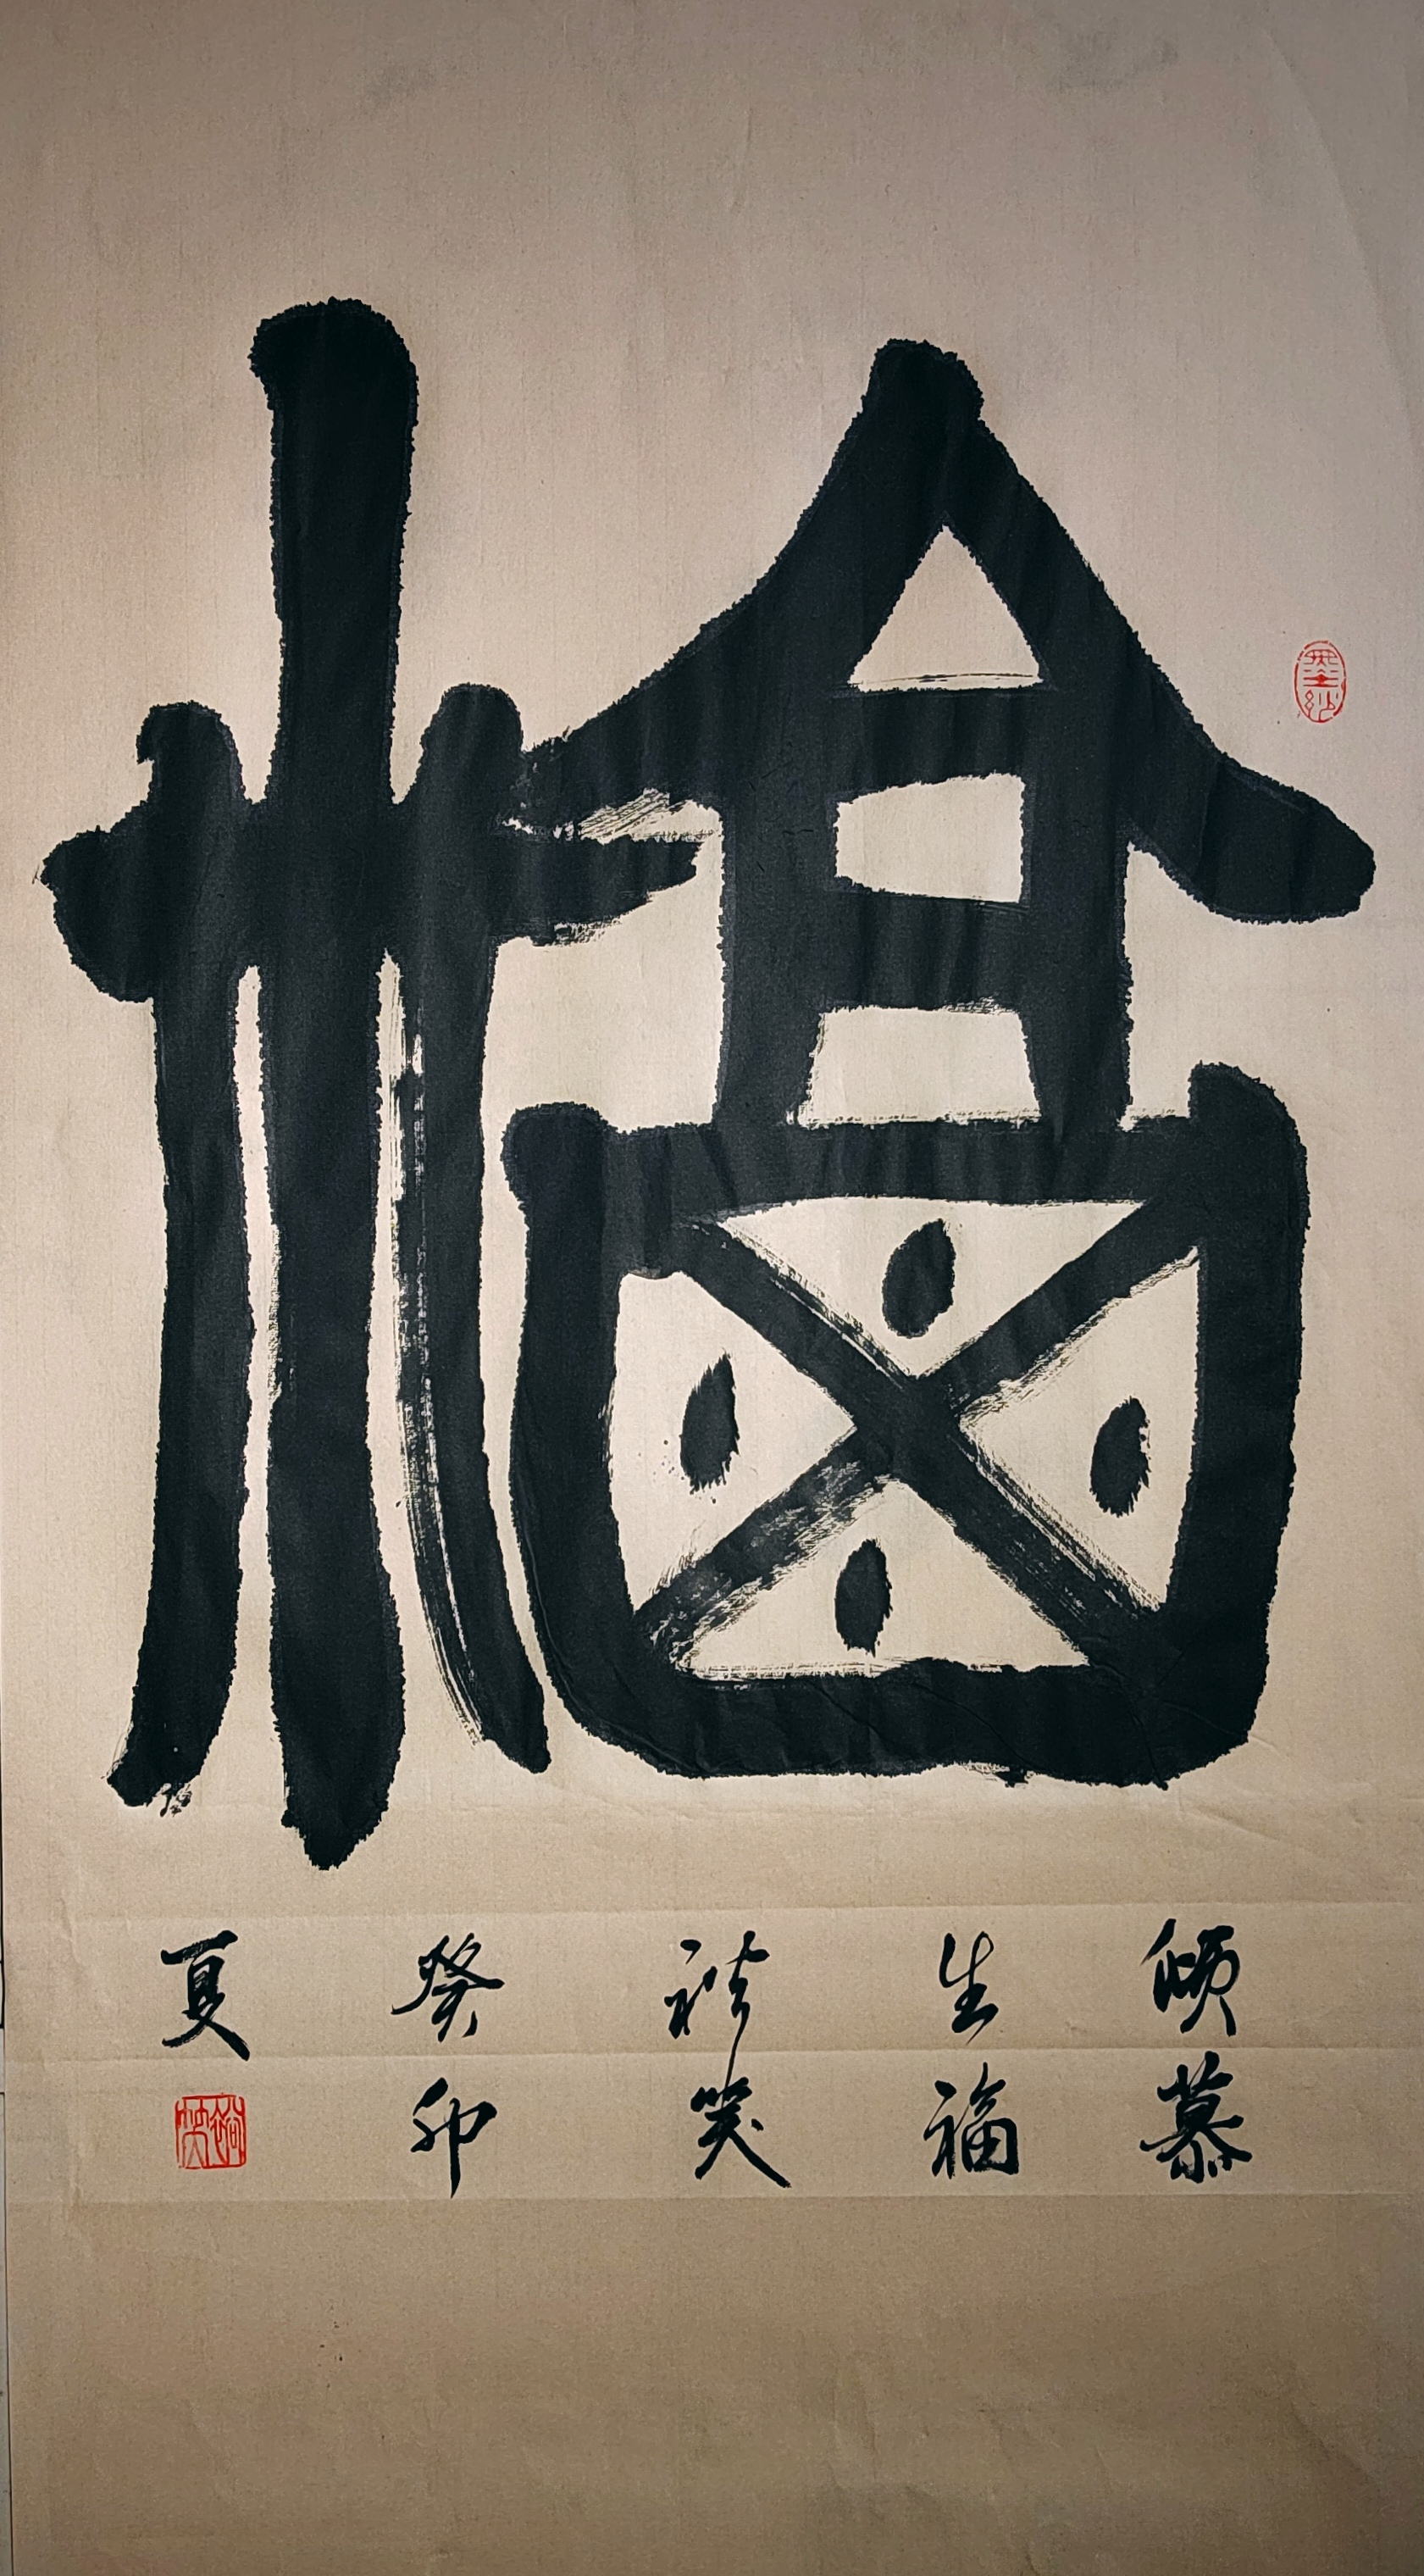 福
倾慕
生福
笑
癸卯
夏